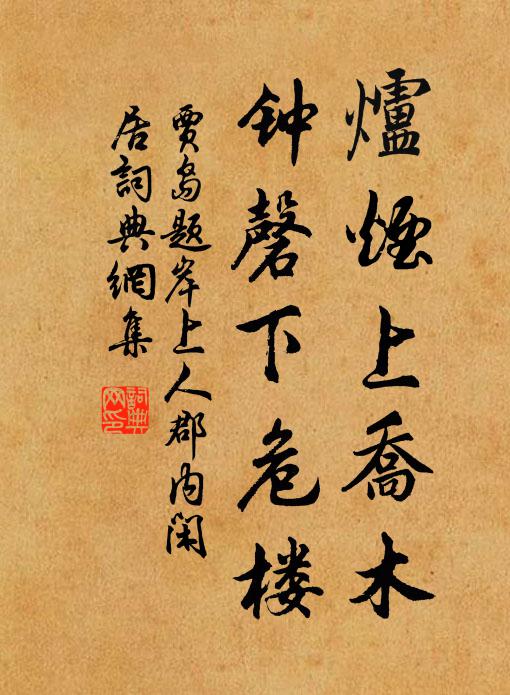 爐煙上喬木
钟磬下危楼
賈島題岸上人郡内闲
居詞典網集
詞典网印